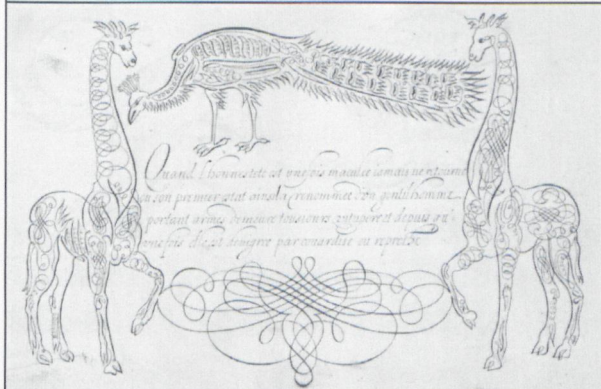 Quand l'honnestete est unefois maculee iamais ne retourne
en son premier estat ainsi la renommee d'un gentilhomme
portant armes demeure tousiours et depuis qu'
unefois elle est denigree par couardise ou reproche